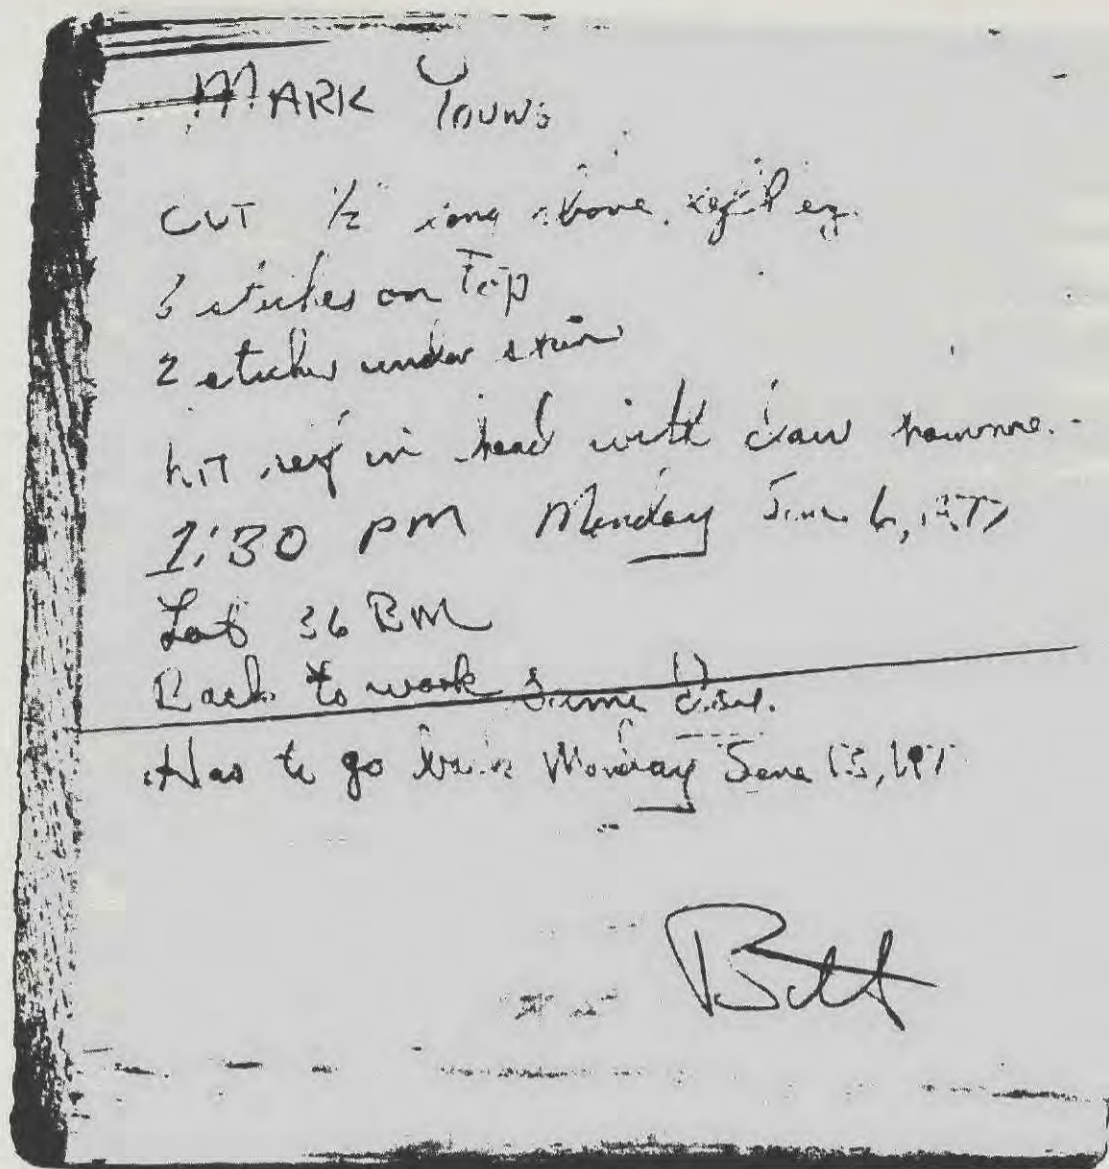 MARK YOUNG
CUT 1/2" long above eye
3 stiches on Top
2 stiches under skin
hit self in head with claw hammer
1:30 PM Monday June 6, 1977
Lot 36 BM
Back to work same day.
Has to go back Monday June 13, 197